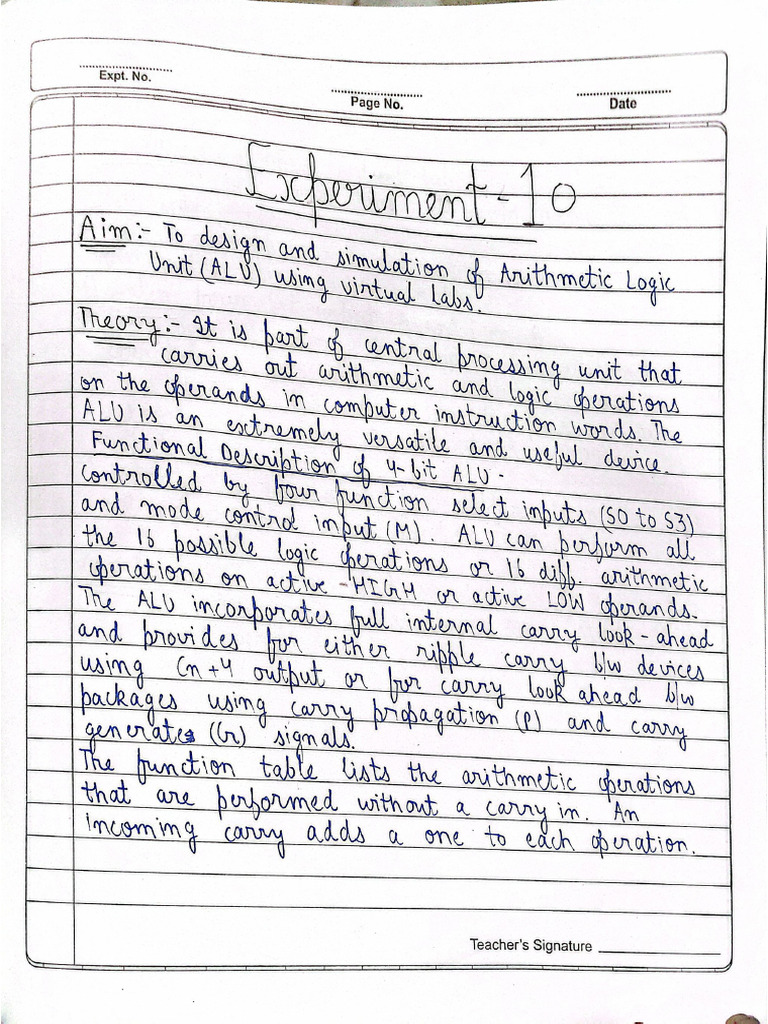 Expt. No.
Page No.
Date
Experiment-10
Aim:- To design and simulation of Arithmetic Logic
Unit (ALU) using virtual labs.
Theory:- It is part of central processing unit that
carries out arithmetic and logic operations
on the operands in computer instruction words. The
ALU is an extremely versatile and useful device.
Functional Description of 4-bit ALU -
controlled by four function select inputs (S0 to S3)
and mode control input (M). ALU can perform all
the 16 possible logic operations or 16 diff. arithmetic
operations on active -HIGH or active LOW operands.
The ALU incorporates full internal carry look-ahead
and provides for either ripple carry b/w devices
using Cn+4 output or for carry look ahead b/w
packages using carry propagation (P) and carry
generates (G) signals.
The function table lists the arithmetic operations
that are performed without a carry in. An
incoming carry adds a one to each operation.
Teacher's Signature